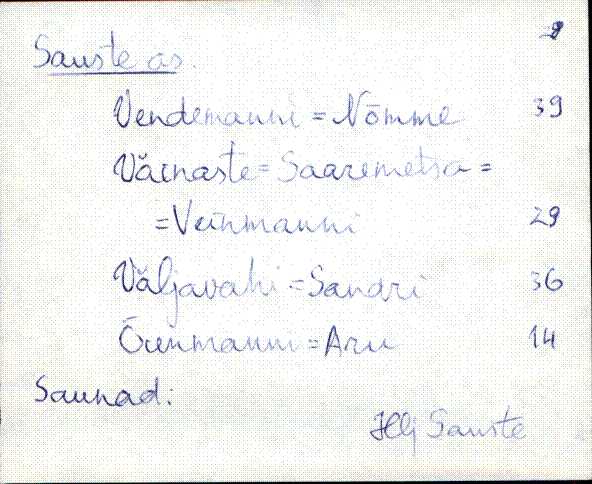 Sauste as.
Vendemanni = Nõmme 39
Väinaste = Saaremetsa =
= Veinmanni 29
Väljavahi = Sandri 36
Õunmanni = Aru 14
Saunad:
Sauste